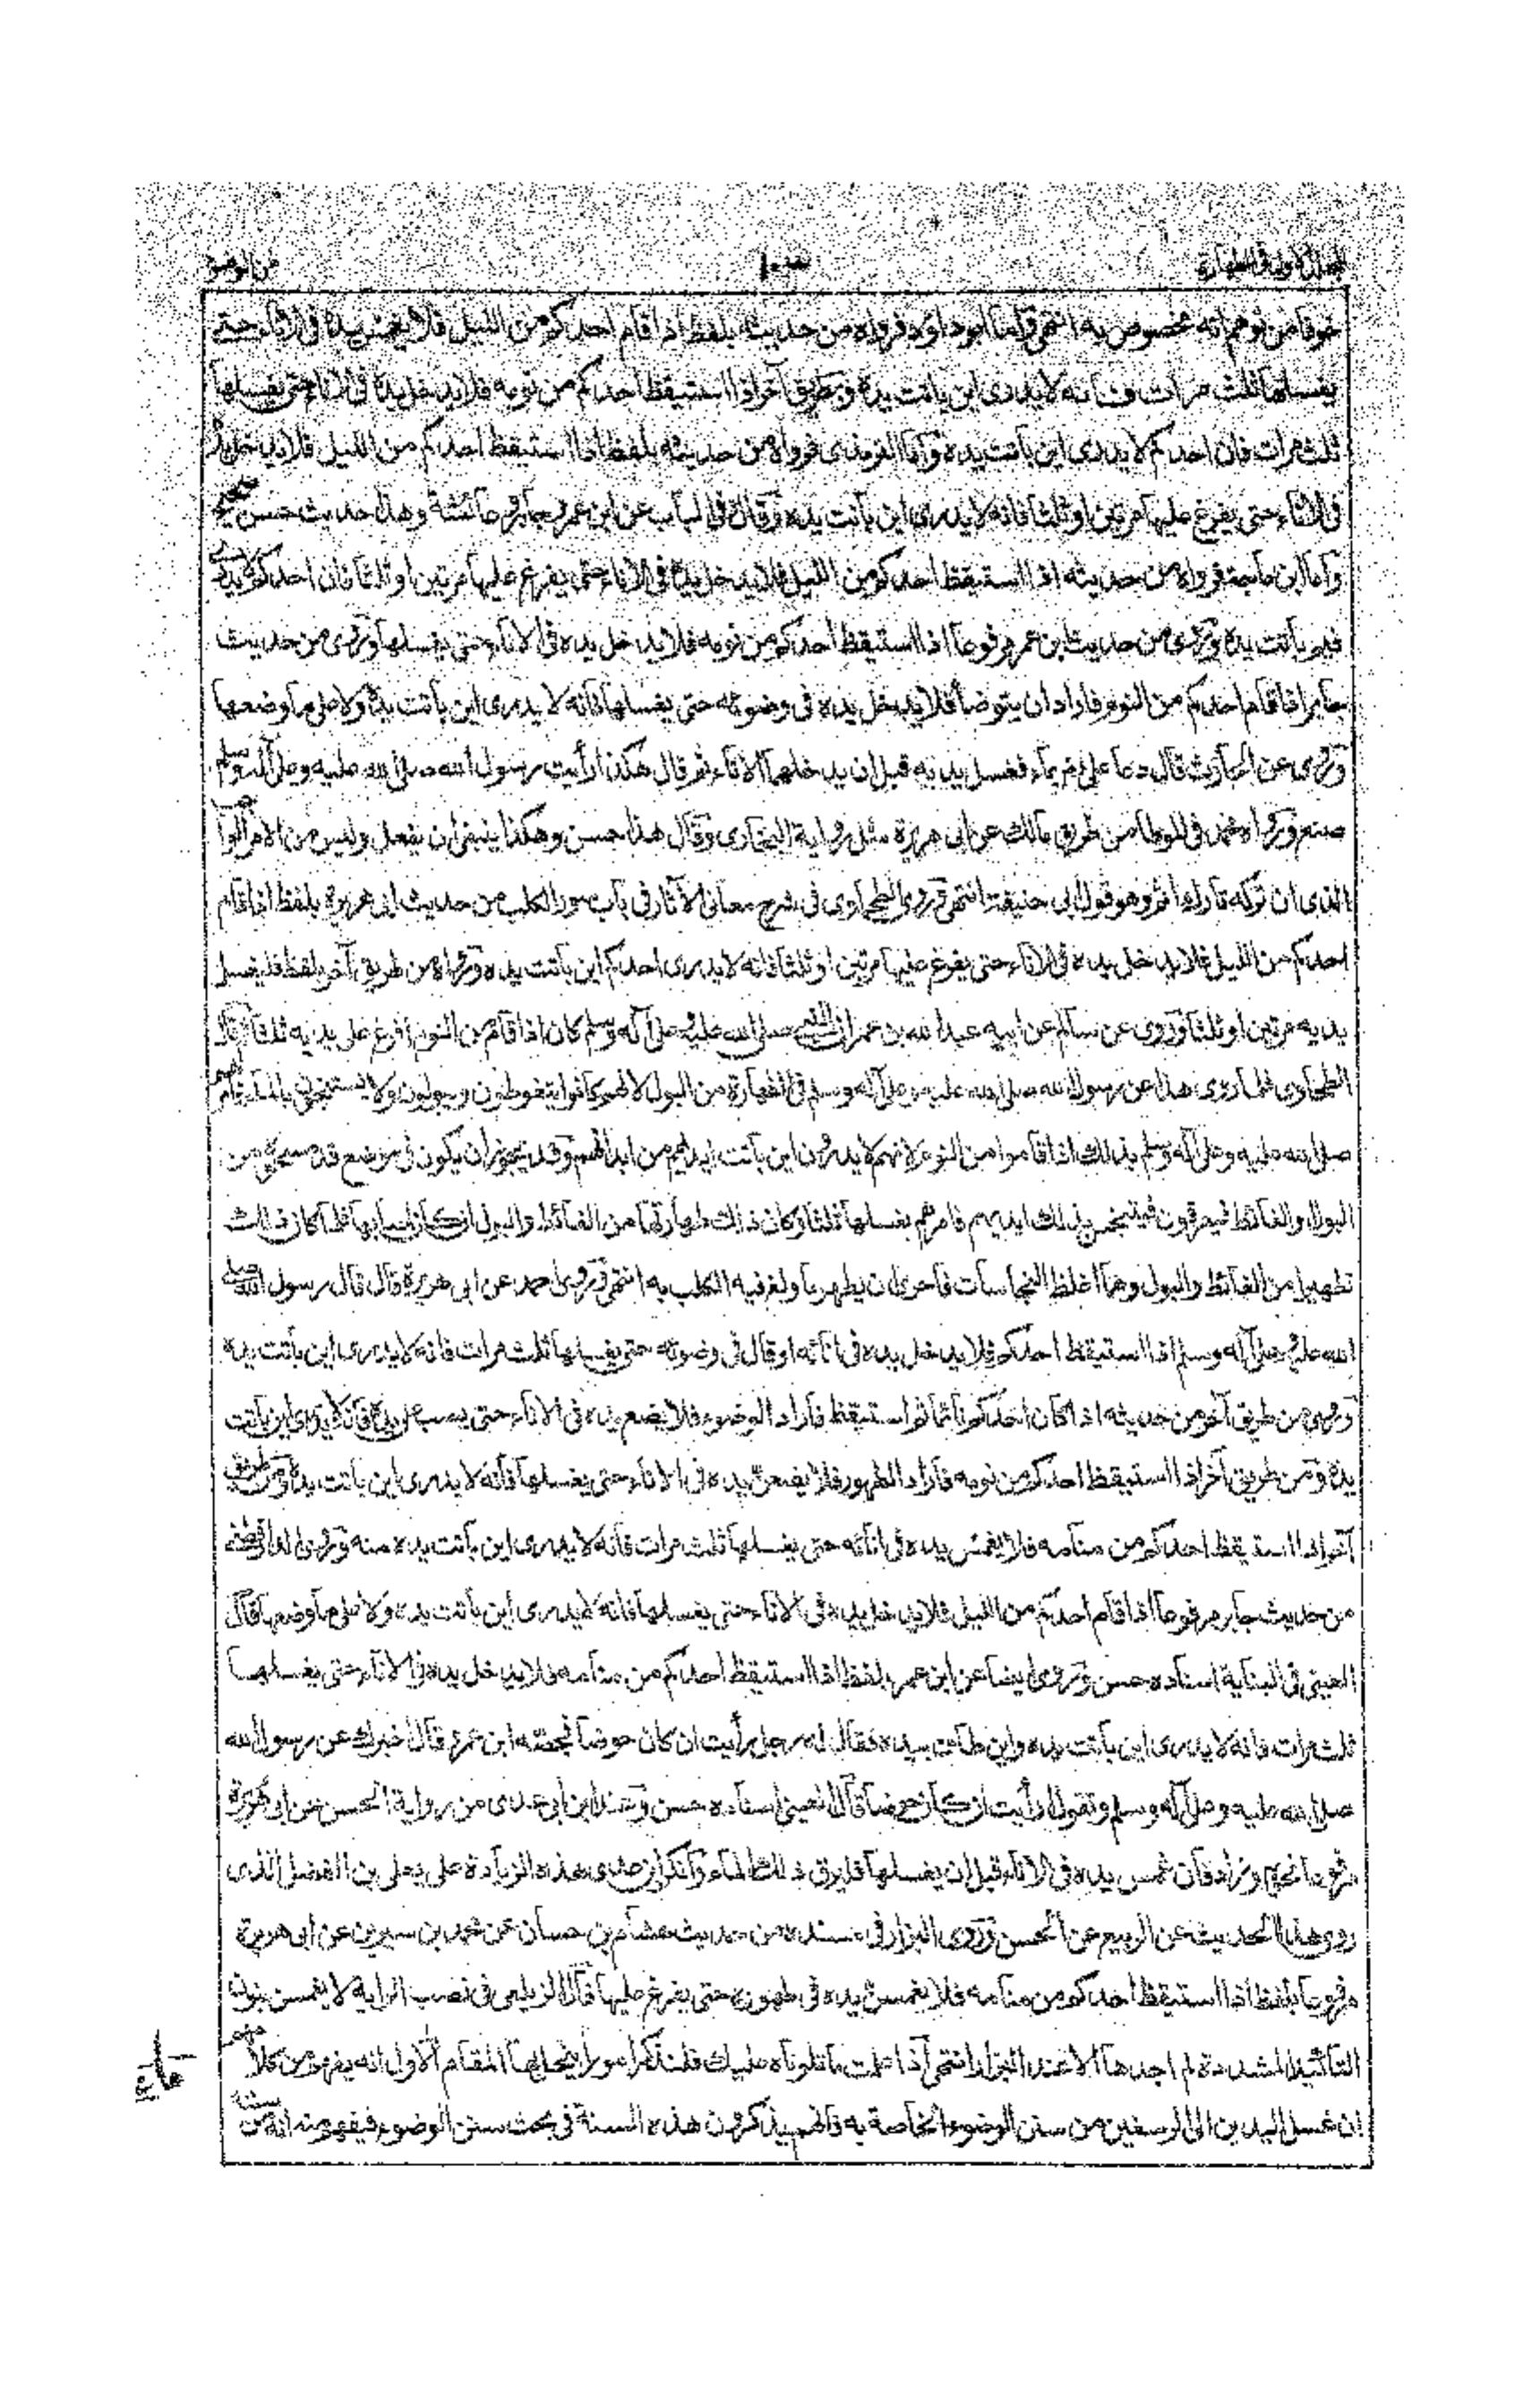 المجلد الاول فى الطهارة ١٠٣ من الوضوء
خوفا من توهم انه مخصوص به انتهى واما ابو داود فرواه من حديثه بلفظ اذا قام احدكم من الليل فلا يغمس يده فى الاناء حتى
يغسلها ثلث مرات فانه لا يدرى اين باتت يده وبطريق آخر اذا استيقظ احدكم من نومه فلا يدخل يده فى الاناء حتى يغسلها
ثلث مرات فان احدكم لا يدرى اين باتت يده واما الترمذى فرواه من حديثه بلفظ اذا استيقظ احدكم من الليل فلا يدخل يده
فى الاناء حتى يفرغ عليها مرتين او ثلثا فانه لا يدرى اين باتت يده وقال فى الباب عن ابن عمر وجابر وعائشة وهذا حديث حسن صحيح
واما ابن ماجة فرواه من حديثه اذا استيقظ احدكم من الليل فلا يدخل يده فى الاناء حتى يفرغ عليها مرتين او ثلثا فان احدكم لا يدرى
فيم باتت يده وروى من حديث ابن عمر مرفوعا اذا استيقظ احدكم من نومه فلا يدخل يده فى الاناء حتى يغسلها وروى من حديث
جابر اذا قام احدكم من النوم فاراد ان يتوضأ فلا يدخل يده فى وضوئه حتى يغسلها فانه لا يدرى اين باتت يده ولا على ما وضعها
وروى عن الحارث قال دعا على بماء فغسل يديه قبل ان يدخلهما الاناء ثم قال هكذا رأيت رسول الله صلى الله عليه وعلى آله وسلم
صنع ورواه محمد فى الموطا من طريق مالك عن ابى هريرة مثل رواية البخارى وقال هذا حسن وهكذا ينبغى ان يفعل وليس من الامر الواجب
الذى ان تركه تارك اثم وهو قول ابى حنيفة انتهى وروى الطحاوى فى شرح معانى الآثار فى باب سور الكلب من حديث ابى هريرة بلفظ اذا قام
احدكم من الليل فلا يدخل يده فى الاناء حتى يفرغ عليها مرتين او ثلثا فانه لا يدرى احدكم اين باتت يده ورواه من طريق آخر بلفظ فليغسل
يديه مرتين او ثلثا وروى عن سالم عن ابيه عبد الله بن عمر ان النبى صلى الله عليه وعلى آله وسلم كان اذا قام من النوم افرغ على يديه ثلثا قال
الطحاوى فلما روى هذا عن رسول الله صلى الله عليه وعلى آله وسلم فى الطهارة من البول لانهم كانوا يتغوطون ويبولون ولا يستنجون بالماء فامرهم
صلى الله عليه وعلى آله وسلم بذلك اذا قاموا من النوم لانهم لا يدرون اين باتت ايديهم من ابدانهم وقد يجوز ان يكون فى موضع قد مسحوه من
البول والغائط فيعرقون فيتنجس بذلك ايديهم فامرهم بغسلها ثلثا وكان ذلك طهارتها من الغائط والبول ان كان اصابها فلما كان ذلك
تطهيرا من الغائط والبول وهما اغلظ النجاسات فاحرى ان يطهر ما ولغ فيه الكلب به انتهى وروى احمد عن ابى هريرة قال قال رسول الله صلى
الله عليه وعلى آله وسلم اذا استيقظ احدكم فلا يدخل يده فى انائه او قال فى وضوئه حتى يغسلها ثلث مرات فانه لا يدرى اين باتت يده
وروى من طريق آخر من حديثه اذا كان احدكم نائما ثم استيقظ فاراد الوضوء فلا يضع يده فى الاناء حتى يصب على يده فانه لا يدرى اين باتت
يده ومن طريق آخر اذا استيقظ احدكم من نومه فاراد الطهور فلا يضعن يده فى الاناء حتى يغسلها فانه لا يدرى اين باتت يده ومن طريق
آخر اذا استيقظ احدكم من منامه فلا يغمس يده فى انائه حتى يغسلها ثلث مرات فانه لا يدرى اين باتت يده منه وروى الدارقطنى
من حديث جابر مرفوعا اذا قام احدكم من الليل فلا يدخل يده فى الاناء حتى يغسلها فانه لا يدرى اين باتت يده ولا على ما وضعها قال
العينى فى البناية اسناده حسن وروى ايضا عن ابن عمر بلفظ اذا استيقظ احدكم من منامه فلا يدخل يده فى الاناء حتى يغسلها
ثلث مرات فانه لا يدرى اين باتت يده واين طافت يده فقال له رجل ارأيت ان كان حوضا فحصبه ابن عمر وقال اخبرك عن رسول الله
صلى الله عليه وعلى آله وسلم وتقول ارأيت ان كان حوضا قال العينى اسناده حسن وعند ابن ابى عدى من رواية الحسن عن ابى هريرة
مرفوعا نحوه وزاد فان غمس يده فى الاناء قبل ان يغسلها فليرق ذلك الماء وانكر ابن عدى هذه الزيادة على يعلى بن الفضل الذى
روى هذا الحديث عن الربيع عن الحسن وروى البزار فى مسنده من حديث هشام بن حسان عن محمد بن سيرين عن ابى هريرة
مرفوعا بلفظ اذا استيقظ احدكم من منامه فلا يغمسن يده فى طهوره حتى يفرغ عليها قال الزيلعى فى نصب الراية لا يغمسن بنون
التاكيد المشددة لم اجدها الا عند البزار انتهى اذا علمت ما تلوناه عليك فلنذكر امورا يحتاج اليها المقام الاول انه يفهم من كلامهم
ان غسل اليدين الى الرسغين من سنن الوضوء الخاصة به فانهم يذكرون هذه السنة فى بحث سنن الوضوء فيفهم منه انه من سننه